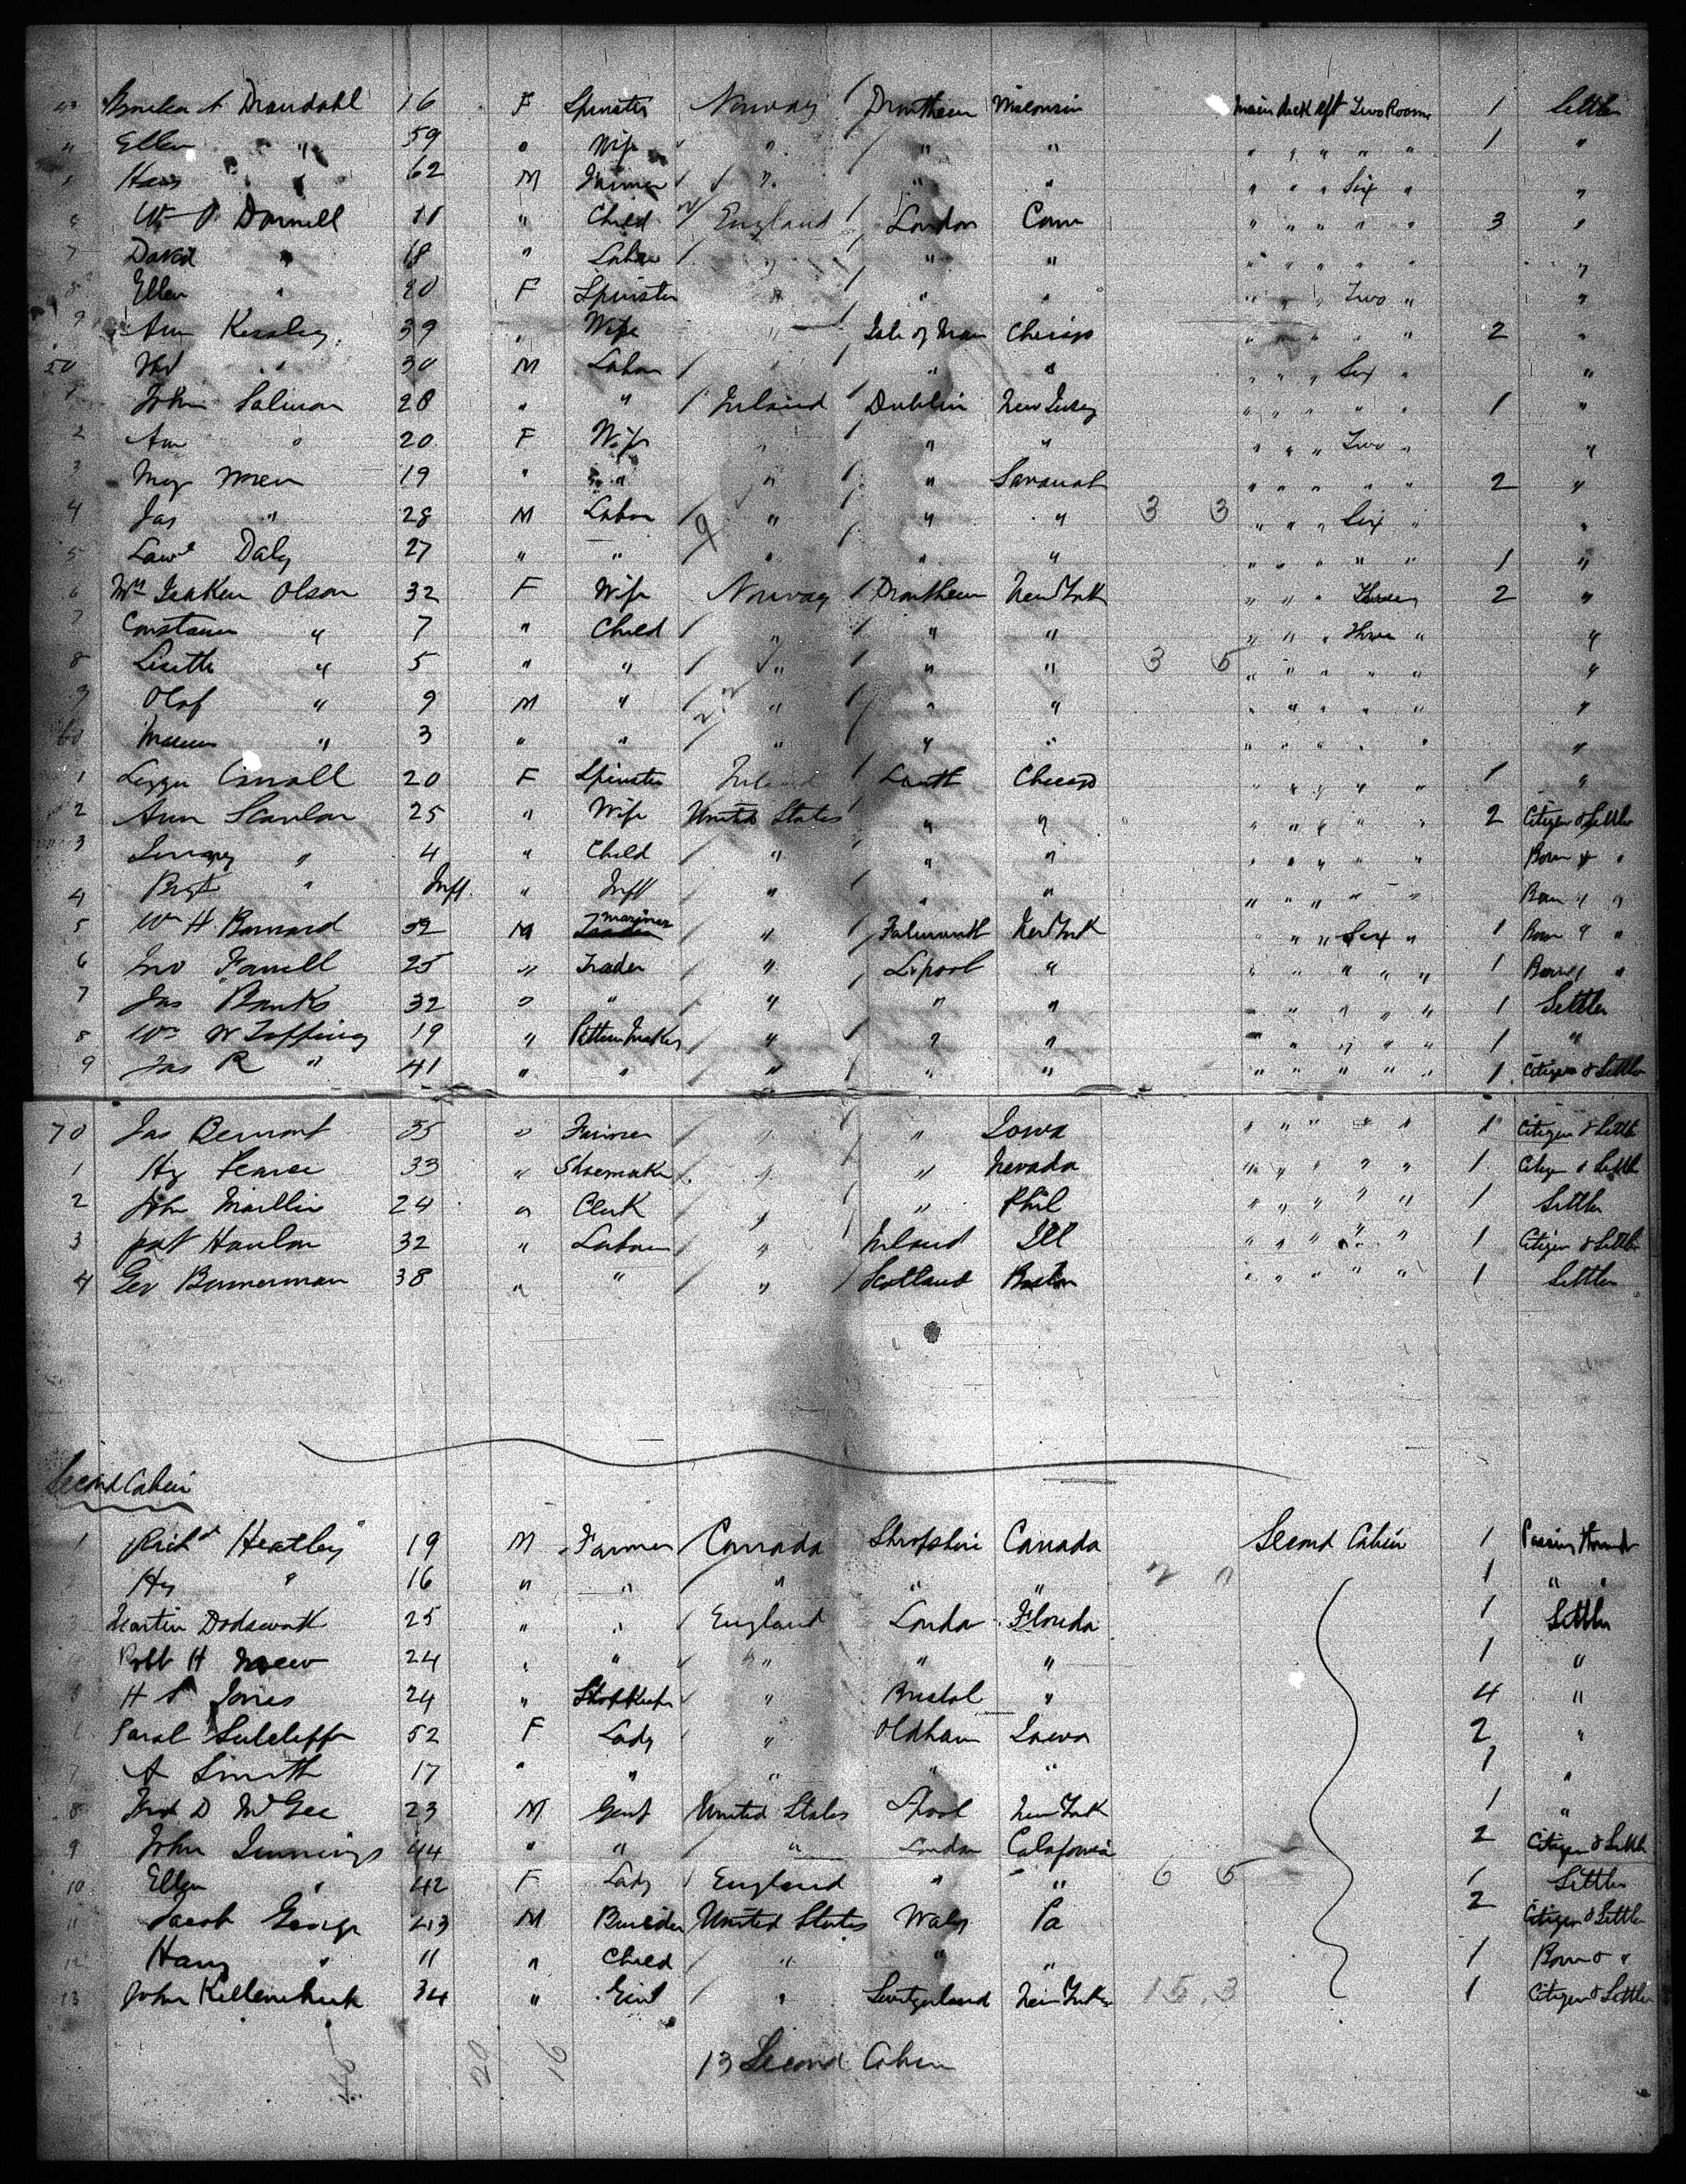 Drondahl 16 F Spinster Norway Drontheim Wisconsin Main deck aft Two Rooms 1 Settler
" Ellen " 59 " Wife " " " " " " " " 1 "
Hans " 62 M Farmer " " " " " " Six " "
Wm Darnell 11 " Child England London Conn " " " " " 3 "
7 David " 18 " Labor " " " " " " " " "
8 Ellen " 20 F Spinster " " " " " " Two " "
9 Ann 39 " Wife " Isle of Man Chicago " " " " " 2 "
50 " 30 M Labor " " " " " " Six " "
1 John Salmon 28 " " Ireland Dublin New Jersey " " " " " 1 "
2 Ann " 20 F Wife " " " " " " Two " "
3 19 " " " " Savanah " " " " " 2 "
4 Jas " 28 M Labor " " " 3 3 " " " Six " "
5 Lawe Daly 27 " " " " " " " " " " 1 "
6 Mrs Olson 32 F Wife Norway Drontheim New York " " " 2 "
7 " 7 " Child " " " " " " Three " "
8 Lisette " 5 " " " " " 3 5 " " " " " "
9 Olaf " 9 M " " " " " " " " " "
60 " 3 " " " " " " " " " " "
1 Lizzie 20 F Spinster Ireland Louth Chicago " " " " " 1 "
2 Ann Scanlon 25 " Wife United States " " " " " " " 2 Citizen & Settler
3 " 4 " Child " " " " " " " " Born & "
4 " Inft. " Inft " " " " " " " " Born & "
5 Wm H Barnard 52 M Mariner " Falmouth New York " " " Six " 1 Born & "
6 Jno Farrell 25 " Trader " L'pool " " " " " " 1 Born & "
7 Jas Banks 32 " " " " " " " " " " 1 Settler
8 Wm W Topping 19 " Pattern Maker " " " " " " " " 1 "
9 Jas R " 41 " " " " " " " " " " 1 Citizen & Settler
70 Jas 35 " Farmer " " Iowa " " " " " 1 Citizen & Settler
1 Hy Pearce 33 " Shoemaker " " Nevada " " " " " 1 Citizen & Settler
2 John 24 " Clerk " " Phil " " " " " 1 Settler
3 Pat Hanlon 32 " Laborer " Ireland Ill " " " " " 1 Citizen & Settler
4 Geo Bannerman 38 " " " Scotland Boston " " " " " 1 Settler
Second Cabin
1 Richd Heatley 19 M Farmer Canada Shropshire Canada Second Cabin 1 Passing through
2 Hy " 16 " " " " " 1 " "
3 Martin Dodsworth 25 " " England London Florida 1 Settler
4 Robt H 24 " " " " " 1 "
5 H Jones 24 " Shopkeeper " Bristol " 4 "
6 Sarah Sutcliffe 52 F Lady " Oldham Iowa 2 "
7 A Smith 17 " " " " " 1 "
8 D McGee 23 M Gent United States L'pool New York 1 "
9 John Jennings 44 " " " London Calafornia 2 Citizen & Settler
10 Ellen " 42 F Lady England " " 6 5 1 Settler
11 Jacob George 43 M Builder United States Wales Pa 2 Citizen & Settler
12 Harry " 11 " Child " " " 1 Born & "
13 John 34 " Gent " Switzerland New York 15 3 1 Citizen & Settler
20 16 13 Second Cabin